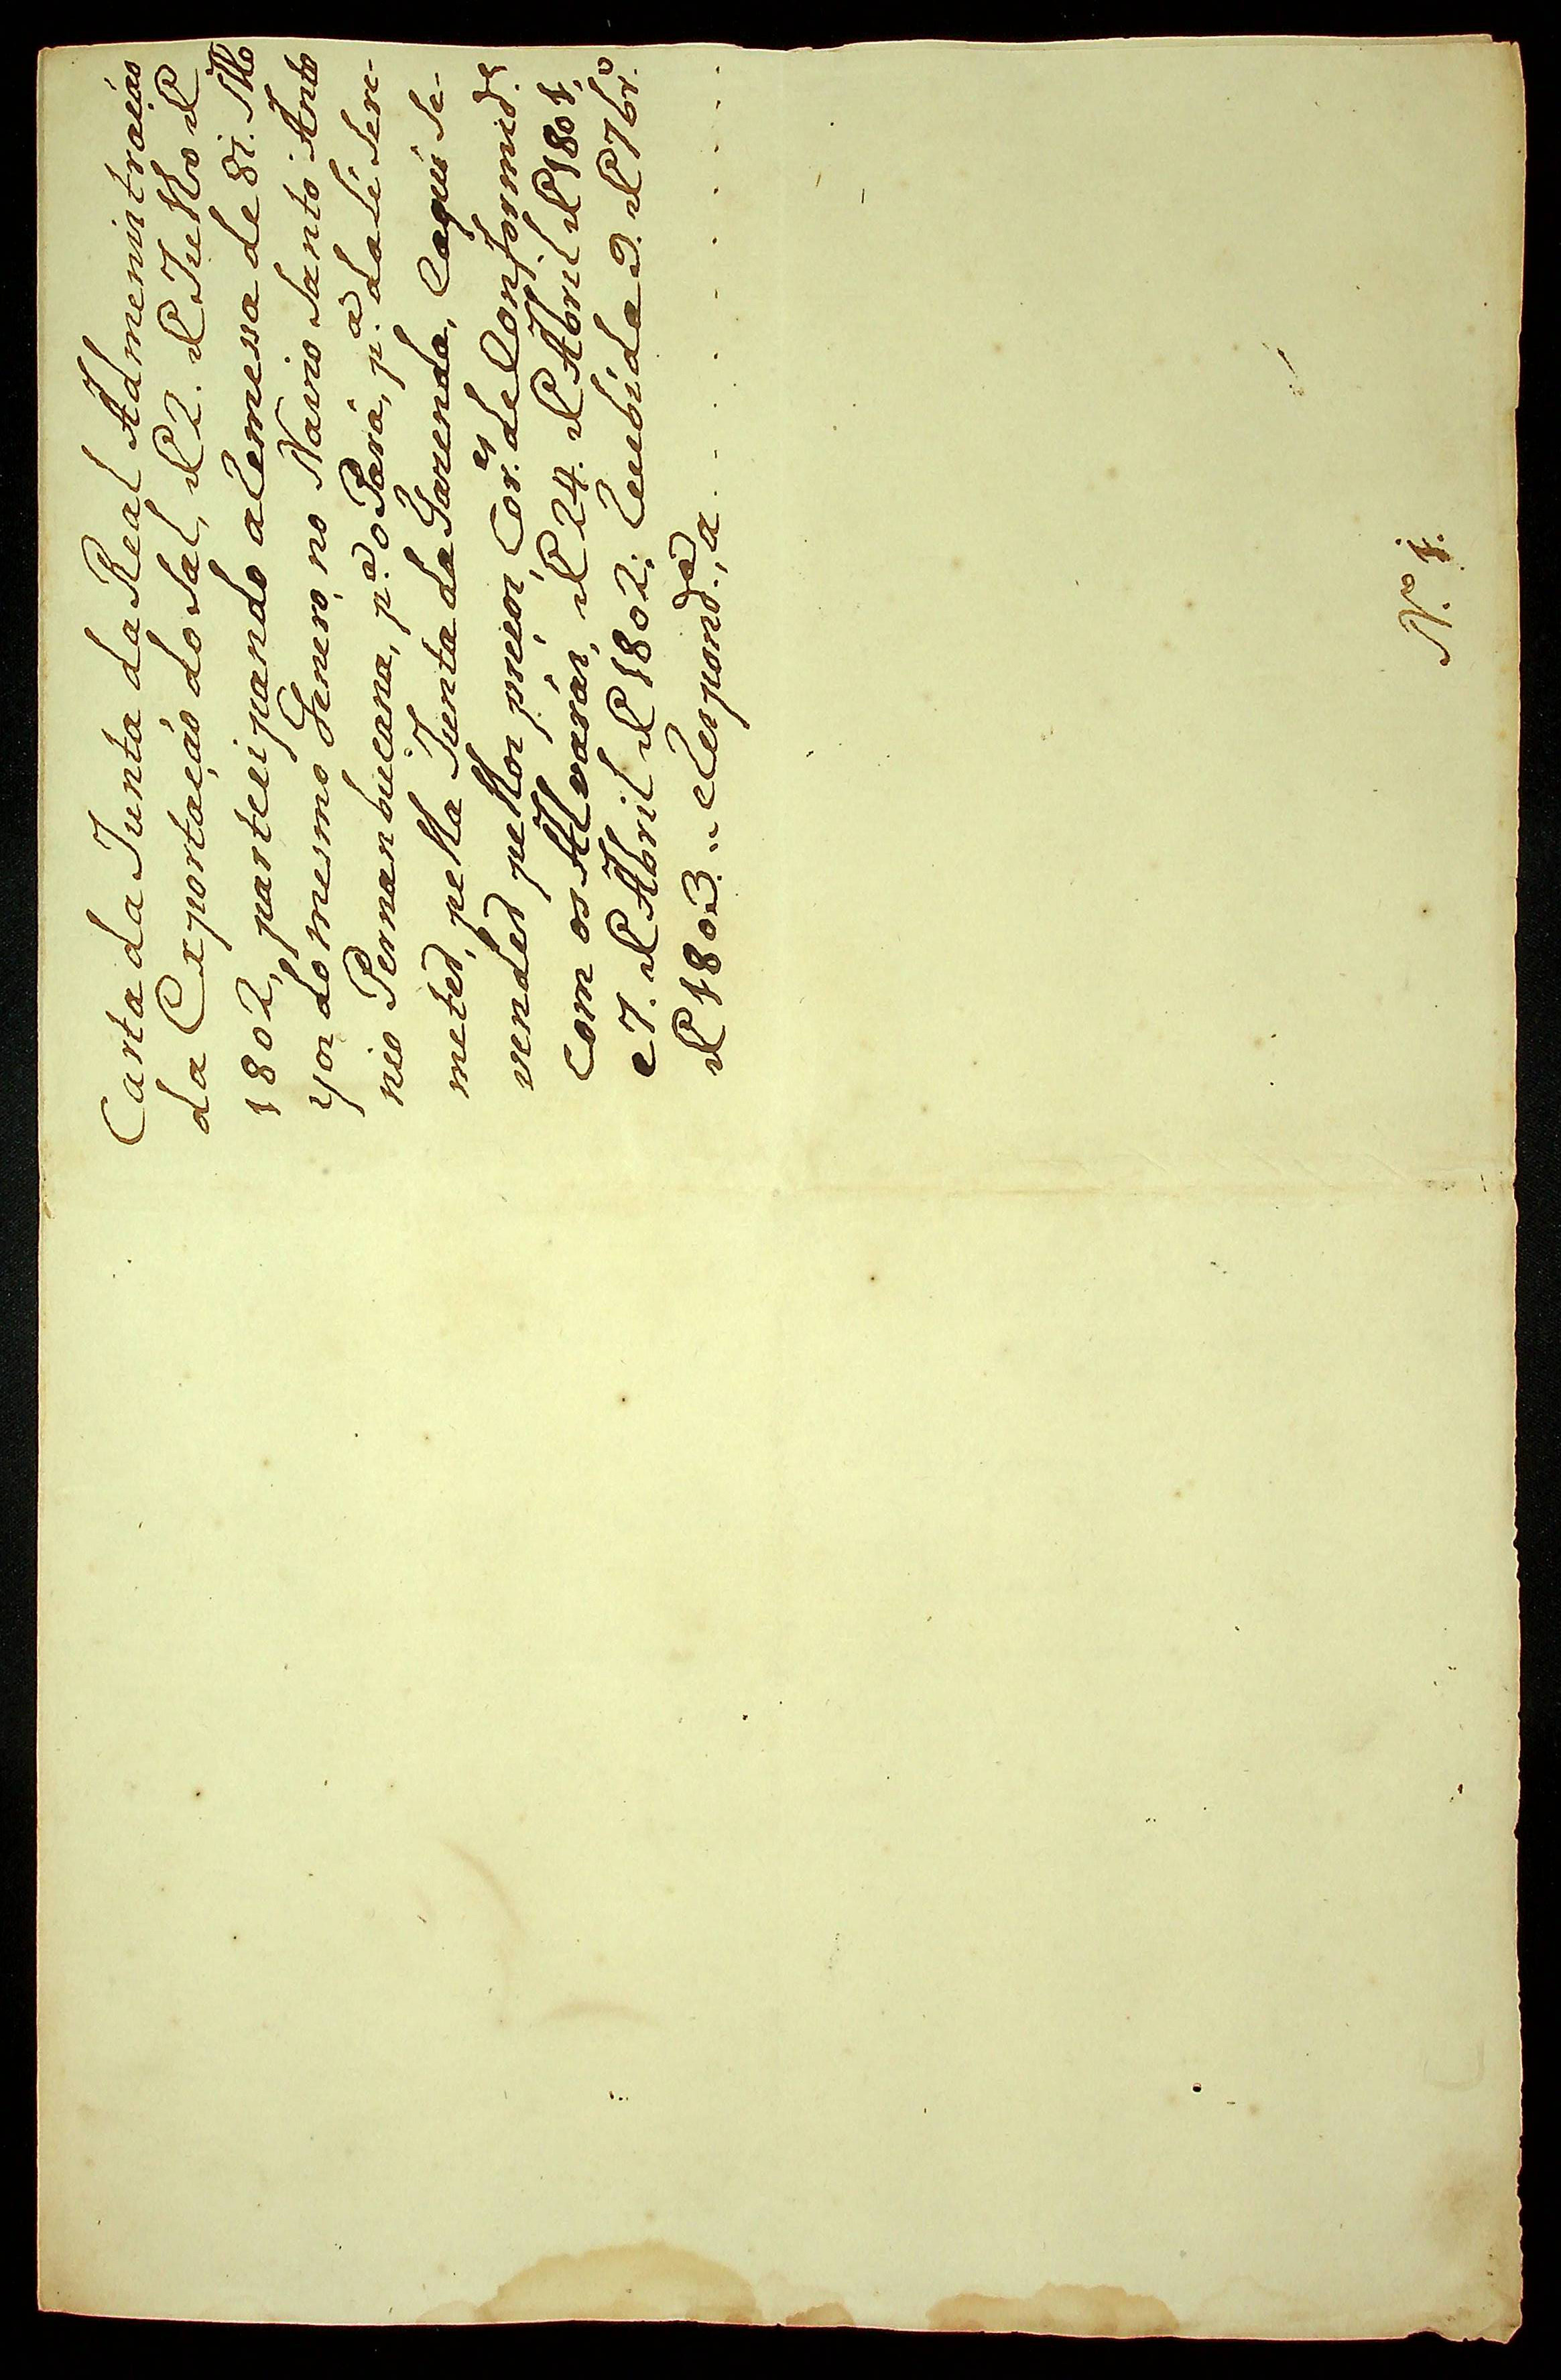 Carta da Junta da Real Admenistração
da Exportação do Sal, de 2. de Julho de
1802, participando a Remessa de 81. M.o
yos do mesmo Genero, no Navio Santo Anto
nio Pernanbucana, p.a o Pará, p.a dali sere-
meter, pella Junta da Fazenda, e aqui se-
vender pellos preços, Cor.es de Conformid.e
com os Alvarás, de 24. de Abril de 1801,
e 7. de Abril de 1802; Recebida a 9. de 7br.o
de 1803.. e Respond.da, a . . . . . . .
N.o 1.